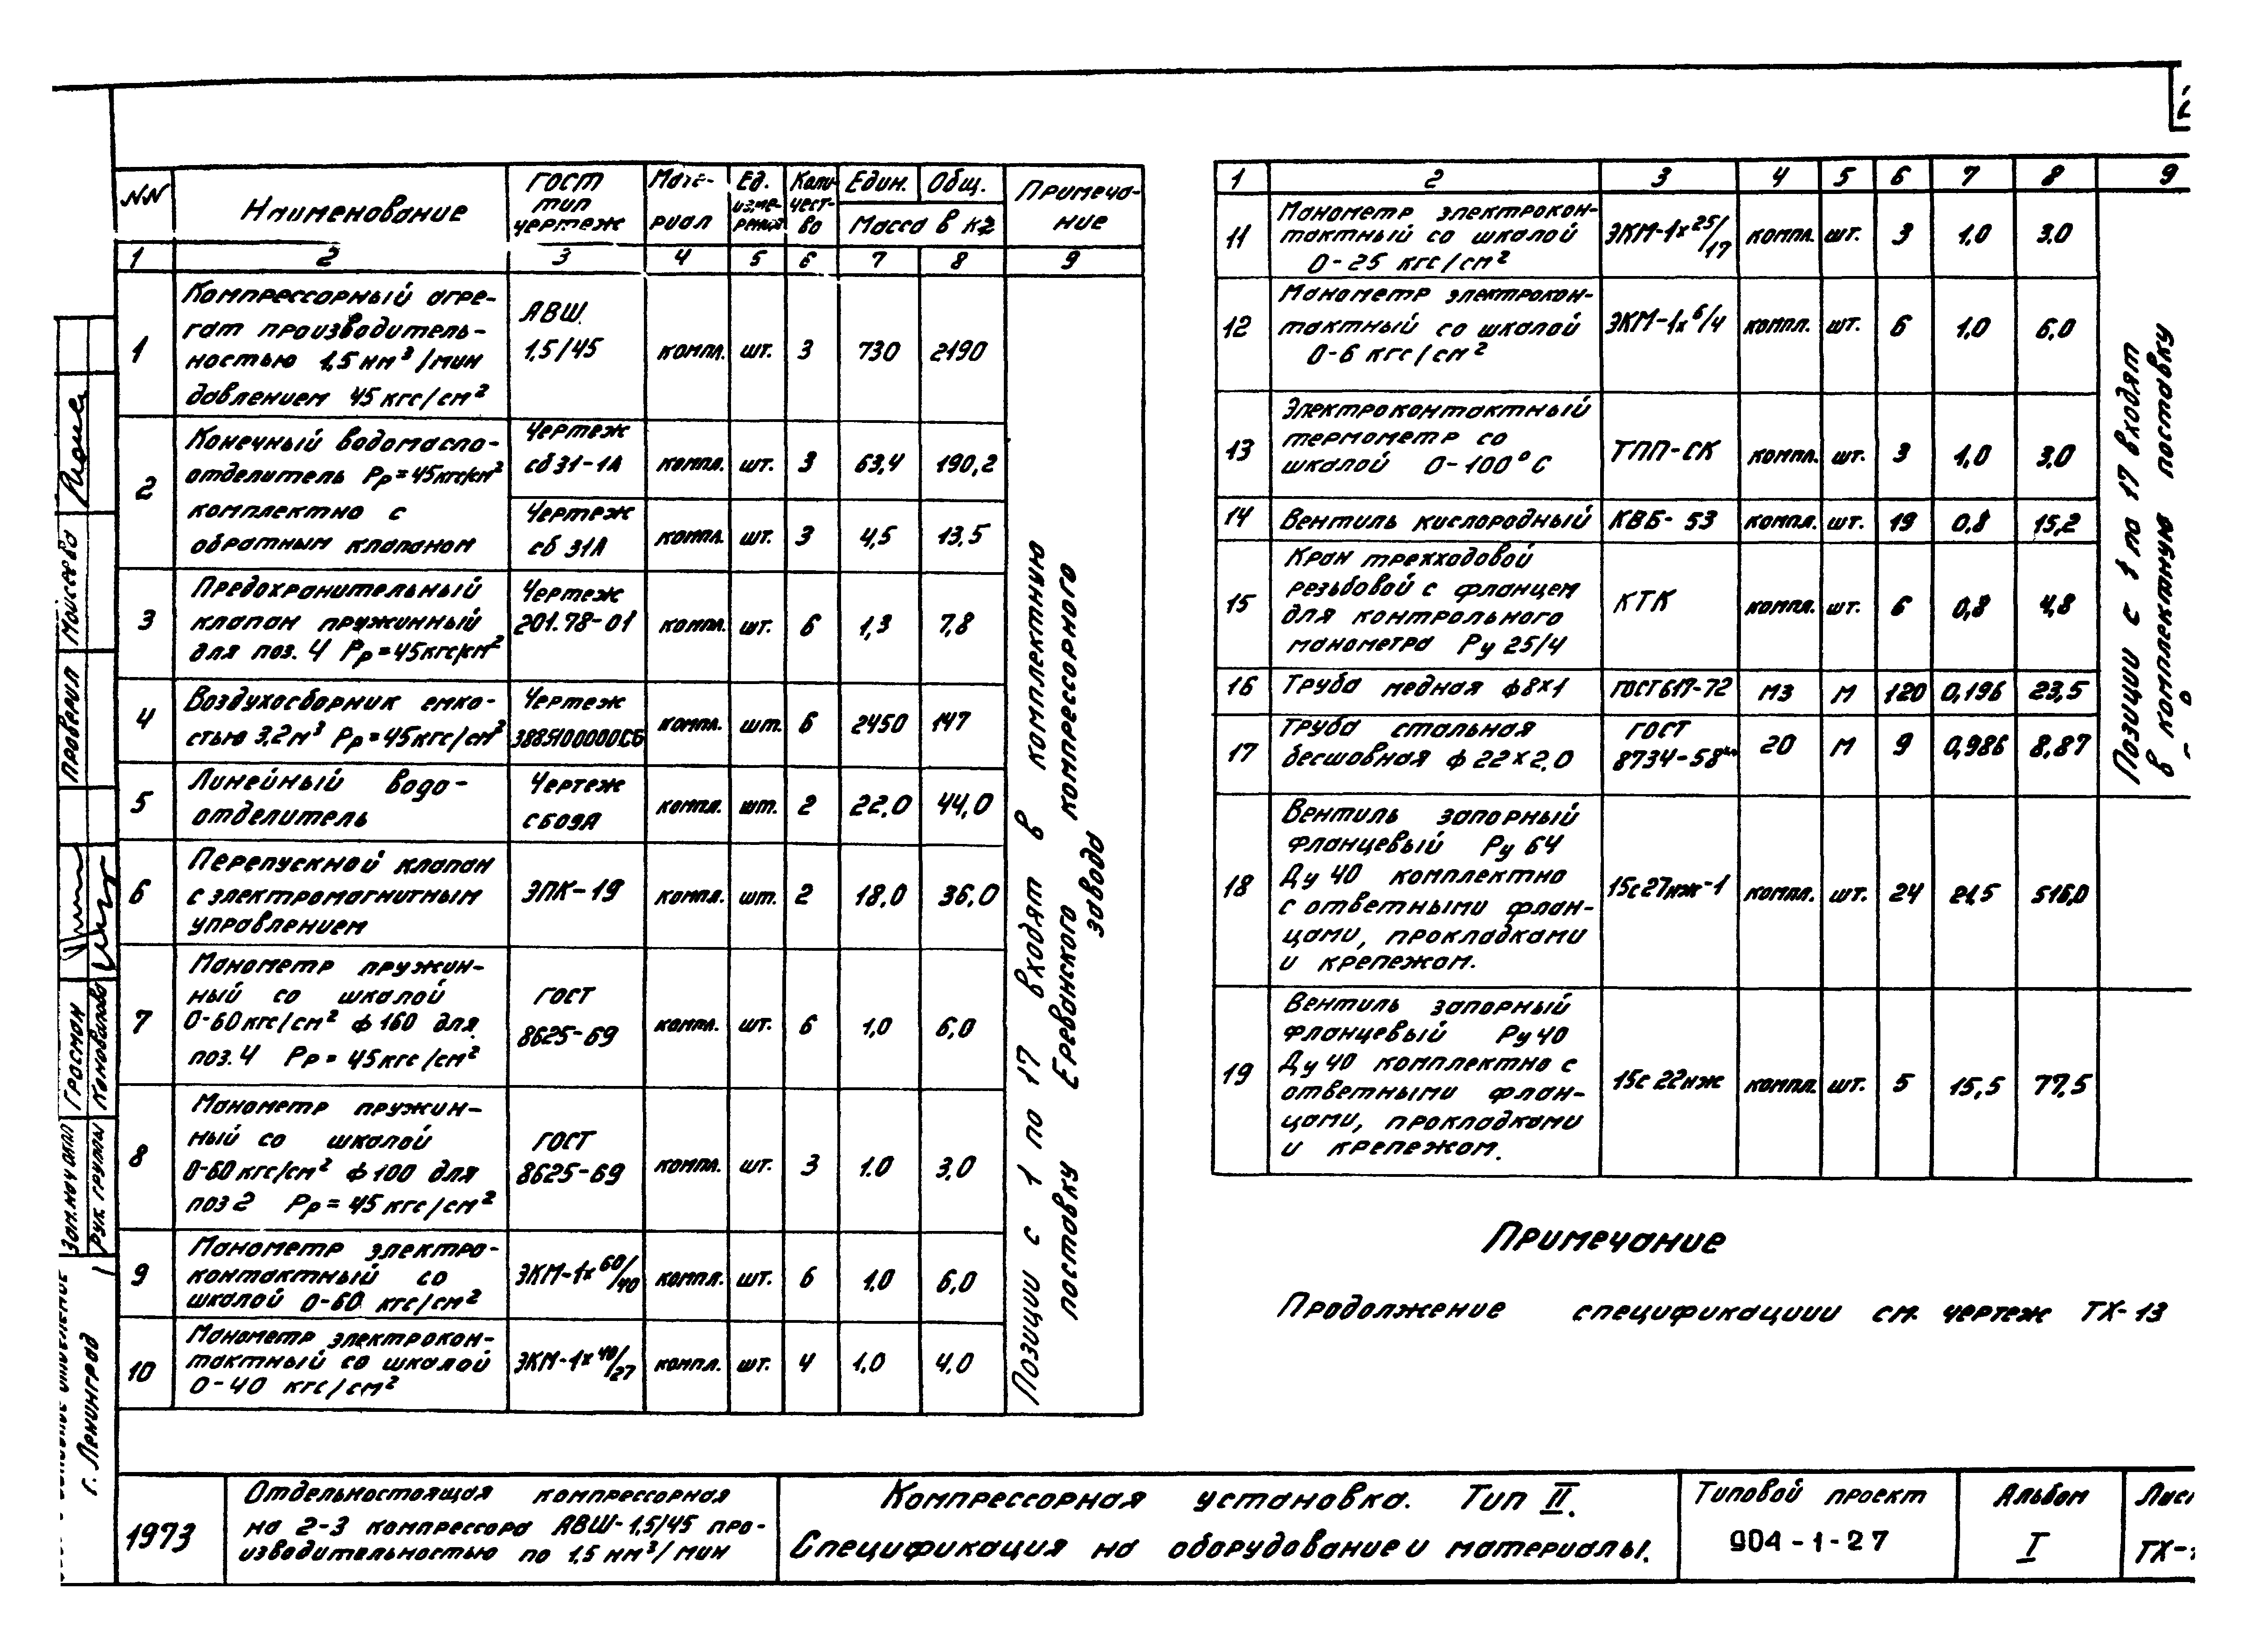 NN Наименование ГОСТ тип чертеж Мате-риал Ед. измерения Количест-во Един. Общ. Масса в кг Примеча-ние
1 2 3 4 5 6 7 8 9
1 Компрессорный агре- АВШ
гат производитель- 1,5/45 компл. шт. 3 730 2190
ностью 1,5 нм³/мин
давлением 45 кгс/см²
2 Конечный водомасло- Чертеж
отделитель Рр=45кгс/см² сб31-1А компл. шт. 3 63,4 190,2
комплектно с Чертеж
обратным клапаном сб 31А компл. шт. 3 4,5 13,5
3 Предохранительный Чертеж
клапан пружинный 201.78-01 компл. шт. 6 1,3 7,8
для поз. 4 Рр=45кгс/см²
4 Воздухосборник емко- Чертеж
стью 3,2м³ Рр=45кгс/см² 3885100000СБ компл. шт. 6 2450 147
5 Линейный водо- Чертеж
отделитель СБ09А компл. шт. 2 22,0 44,0
6 Перепускной клапан
с электромагнитным ЭПК-19 компл. шт. 2 18,0 36,0
управлением
7 Манометр пружин-
ный со шкалой ГОСТ
0-60кгс/см² ф160 для 8625-69 компл. шт. 6 1,0 6,0
поз. 4 Рр=45кгс/см²
8 Манометр пружин-
ный со шкалой ГОСТ
0-60кгс/см² ф100 для 8625-69 компл. шт. 3 1.0 3,0
поз 2 Рр=45кгс/см²
9 Манометр электро-
контактный со ЭКМ-1х60/40 компл. шт. 6 1,0 6,0
шкалой 0-60 кгс/см²
10 Манометр электрокон-
тактный со шкалой ЭКМ-1х40/27 компл. шт. 4 1,0 4,0
0-40 кгс/см²
Позиции с 1 по 17 входят в комплектную
поставку Ереванского компрессорного
завода
1 2 3 4 5 6 7 8 9
11 Манометр электрокон-
тактный со шкалой ЭКМ-1х25/17 компл. шт. 3 1,0 3,0
0-25 кгс/см²
12 Манометр электрокон-
тактный со шкалой ЭКМ-1х6/4 компл. шт. 6 1,0 6,0
0-6 кгс/см²
13 Электроконтактный
термометр со ТПП-СК компл. шт. 3 1,0 3,0
шкалой 0-100°С
14 Вентиль кислородный КВБ-53 компл. шт. 19 0,8 15,2
15 Кран трехходовой
резьбовой с фланцем КТК компл. шт. 6 0,8 4,8
для контрольного
манометра Ру 25/4
16 Труба медная ф8х1 ГОСТ617-72 М3 М 120 0,196 23,5
17 Труба стальная ГОСТ
бесшовная ф22х2,0 8734-58 20 М 9 0,986 8,87
18 Вентиль запорный
фланцевый Ру 64
Ду 40 комплектно 15с27нж-1 компл. шт. 24 21,5 516,0
с ответными флан-
цами, прокладками
и крепежом.
19 Вентиль запорный
фланцевый Ру40
Ду 40 комплектно с 15с 22нж компл. шт. 5 15,5 77,5
ответными флан-
цами, прокладками
и крепежом.
Позиции с 1 по 17 входят
в комплектную поставку
Примечание
Продолжение спецификациии см. чертеж ТХ-13
Проверил Моисеева
Зам.нач ОТПП Гросман
Рук. группы Коновалова
г. Ленинград
1973
Отдельностоящая компрессорная
на 2-3 компрессора АВШ-1,5/45 про-
изводительностью по 1,5 нм³/мин
Компрессорная установка. Тип II.
Спецификация на оборудование и материалы.
Типовой проект
904-1-27
Альбом
I
Лис
ТХ-